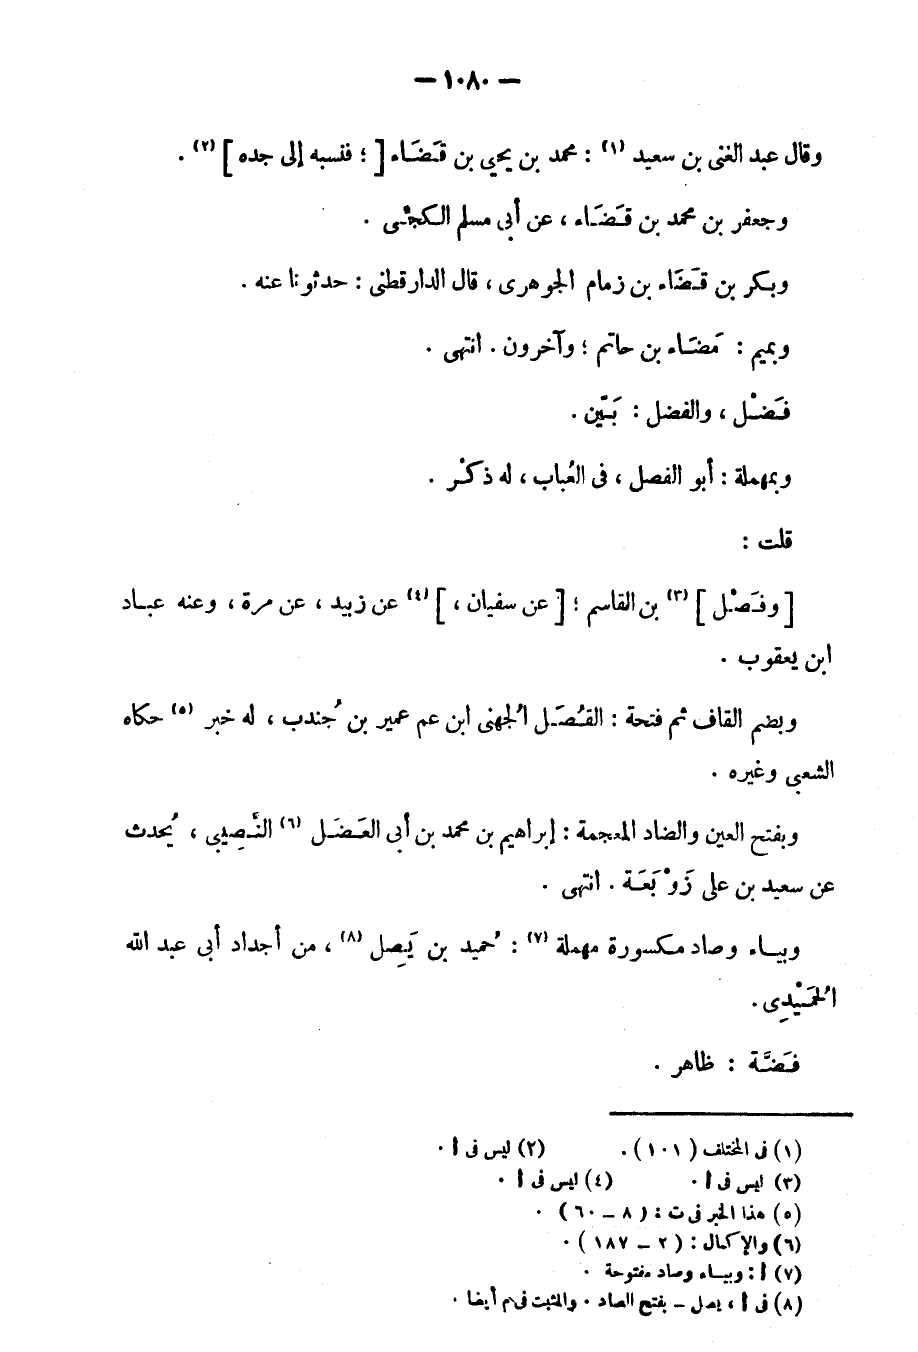 — ١٠٨٠ —
وقال عبد الغنى بن سعيد (١) : محمد بن يحيى بن قَضَاء [ ؛ فنسبه إلى جده ] (٢) .
وجعفر بن محمد بن قَضَاء ، عن أبى مسلم الكجّى .
وبكر بن قَضَاء بن زمام الجوهرى ، قال الدارقطنى : حدثونا عنه .
وبميم : مَضَاء بن حاتم ؛ وآخرون . انتهى .
فَضْل ، والفضل : بَيِّن .
وبمهملة : أبو الفصل ، فى العُباب ، له ذكْر .
قلت :
[ وفَصْل ] (٣) بن القاسم ؛ [ عن سفيان ، ] (٤) عن زبيد ، عن مرة ، وعنه عباد
ابن يعقوب .
وبضم القاف ثم فتحة : القُصَل الُجهنى ابن عم عمير بن جُندب ، له خبر (٥) حكاه
الشعبى وغيره .
وبفتح العين والضاد المعجمة : إبراهيم بن محمد بن أبى العَضَل (٦) النَّصِيبى ، يُحدث
عن سعيد بن على زَوْبَعَة . انتهى .
وبياء وصاد مكسورة مهملة (٧) : حُميد بن يَصِل (٨) ، من أجداد أبى عبد الله
الُحمَيْدِى .
فَضَّة : ظاهر .
(١) فى المختلف ( ١٠١ ) . (٢) ليس فى ا .
(٣) ليس فى ا . (٤) ليس فى ا .
(٥) هذا الخبر فى ت : ( ٨ – ٦٠ ) .
(٦) والإكمال : ( ٢ – ١٨٧ ) .
(٧) ا : وبياء وصاد مفتوحة .
(٨) فى ا ، يصل – بفتح الصاد . والمثبت فى م أيضا .